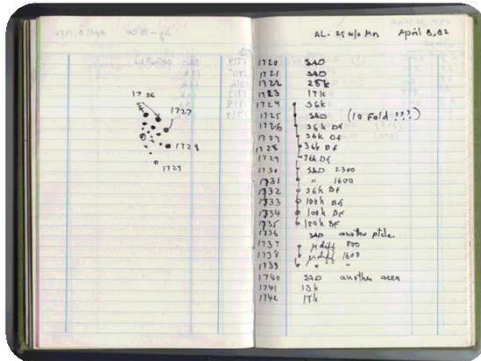 1726
1727
1728
1729
AL-25 w/o Mn April 8, 82
1720 SAD
1721 SAD
1722 25k
1723 17k
1724 36k
1725 SAD (10 Fold ???)
1726 36k DF
1727 36k DF
1728 36k DF
1729 36k DF
1730 SAD 2300
1731 " 1600
1732 36k DF
1733 100k DF
1734 100k DF
1735 100k DF
1736 SAD another
1737 µdiff 800
1738 µdiff 1600
1739 " "
1740 SAD another area
1741 13k
1742 17k